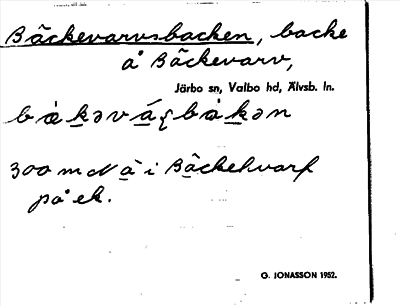 Bäckevarvsbacken, backe
å Bäckevarv,
Järbo sn, Valbo hd, Älvsb. ln.
300 m N ä i Bäckehvarf
på ek.
G. JONASSON 1952.